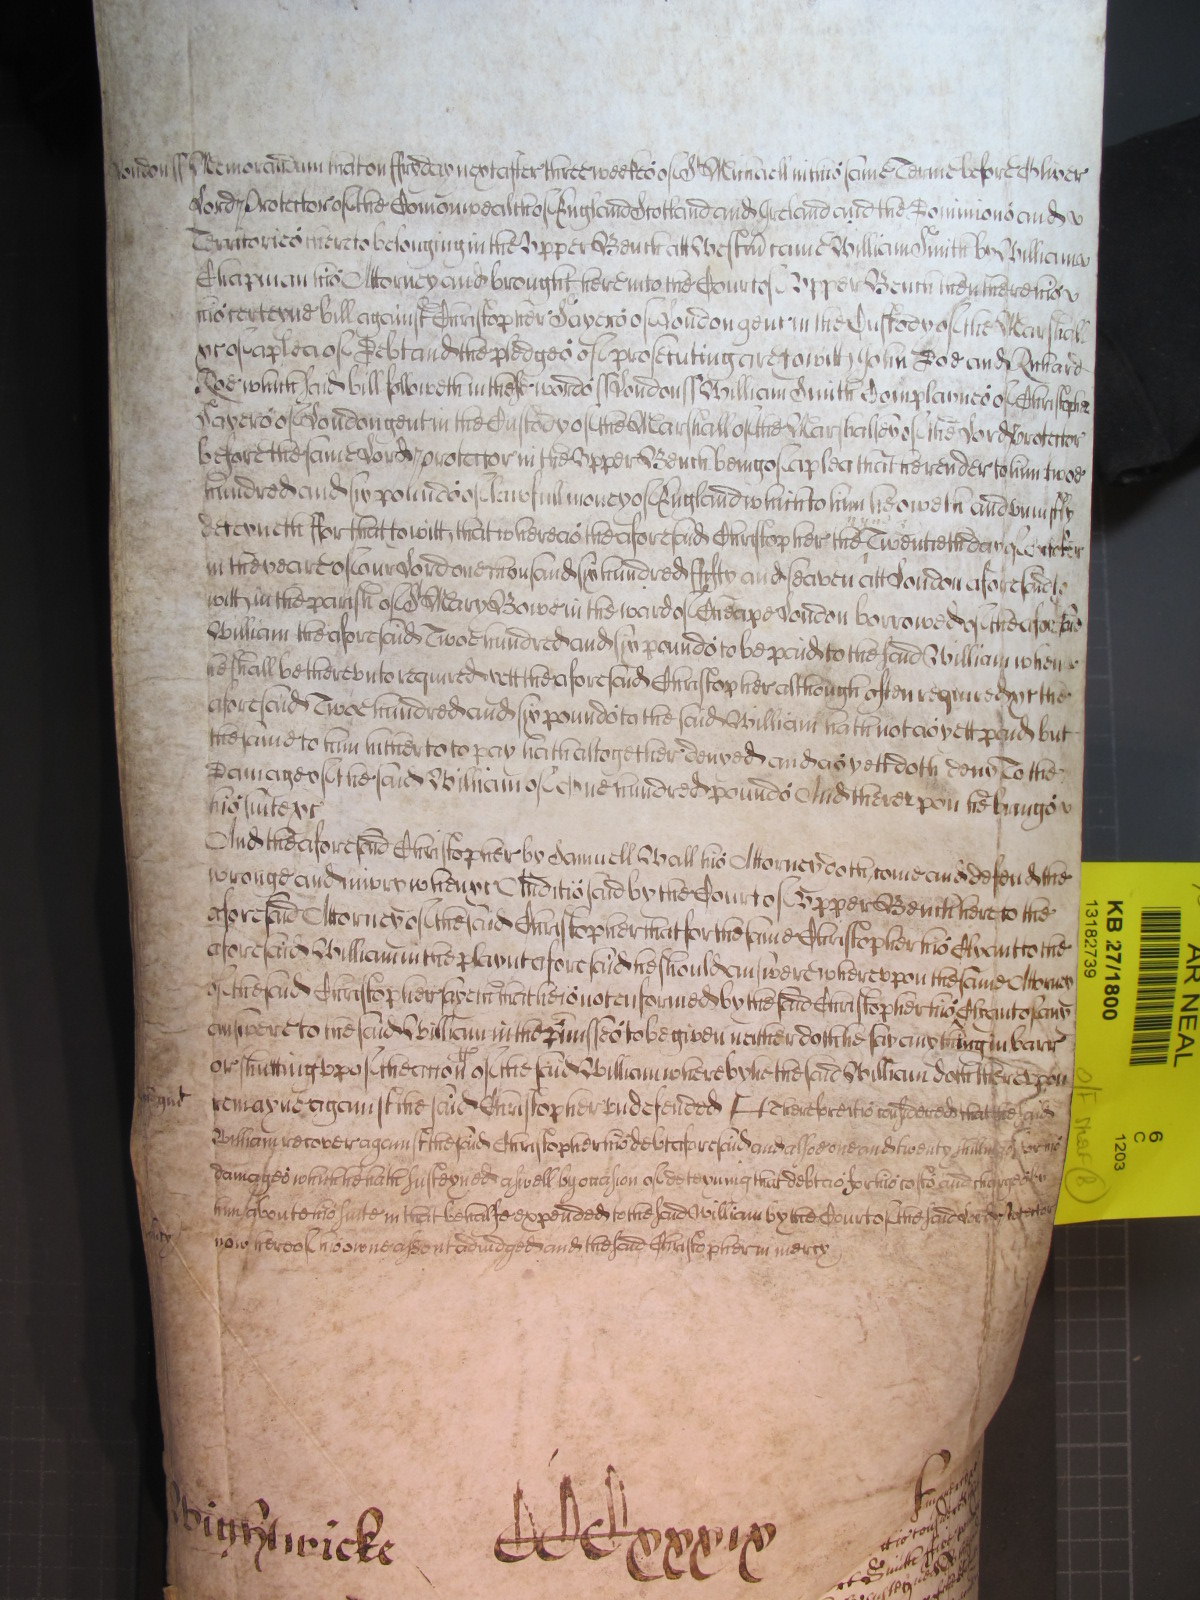 London ss Memorandum that on ffryday next after three weekes of St Michaell in this same Terme before Oliver
Lord Protector of the Comonwealth of England Scotland and Ireland and the Dominions and
Territories thereto belonging in the Upper Bench att Westm came William Smith by William
Chapman his Attorney and brought here into the Court of Upper Bench then there his
certeyne bill against Christopher Sayers of London gent in the Custody of the Marshall
&c of a plea of Debt and the pledges of prosecuting are to witt John Doe and Richard
Roe which said bill followeth in these words ss London ss William Smith Complaynes of Christopher
Sayers of London gent in the Custody of the Marshall of the Marshalsey of the Lord Protector
before the same Lord Protector in the Upper Bench being of a plea that he render to him twoe
hundred and six pounds of lawfull money of England which to him he oweth and uniustly
deteyneth ffor that to witt, that whereas the aforesaid Christopher the Twentieth day of October
in the yeare of our Lord one thousand six hundred fifty and seaven att London aforesaid to
witt, in the parish of St Mary Bowe in the ward of Cheape London borrowed of the aforesaid
William the aforesaid Twoe hundred and six pounds to be paid to the said William when
he shall be thereunto required yett the aforesaid Christopher although often required &c the
aforesaid Twoe hundred and six pounds to the said William hath not as yett paid but
the same to him hitherto to pay hath altogether denyed and as yett doth deny To the
Damage of the said William of One hundred pounds And thereupon he brings
his suite &c
And the aforesaid Christopher by Samuell Wall his Attorney doth come and defend the
wronge and iniury when &c And it is said by the Court of Upper Bench here to the
aforesaid Attorney of the said Christopher that for the same Christopher his Clyant to the
aforesaid William in the playnt aforesaid he should answere whereupon the same Attorney
of the said Christopher sayeth that he is not enformed by the said Christopher his Clyant of any
answere to the said William in the pmisses to be given neither doth he say any thing in barr
or shutting upp of the action of the said William whereby he the said William doth thereupon
remayne against the said Christopher undefended Therefore it is considered that the said
William recover against the said Christopher his debt aforesaid and alsoe one and twenty shillings for his
damages which he hath susteyned as well by occasion of deteyning that debt as for his costs and charges by
him about his suite in that behalfe expended to the said William by the Court of the said Lord Protector
now here of his owne assent adiudged and the said Christopher in mercy
Wightwicke
CCCxxxix
AR NEAL
KB 27/1800
13182739
6
C
1203